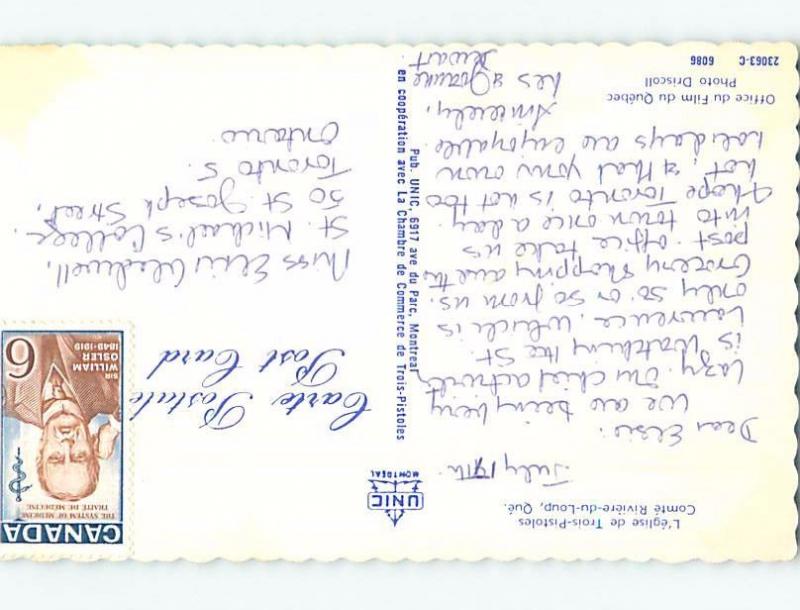 L'église de Trois-Pistoles
Comté Rivière-du-Loup, Qué.
July 19th
Dear Elsie.
We are being very
lazy. Our chief activity
is watching the St.
Lawrence. which is
only 50' or so from us.
Grocery shopping and the
post office take us
into town once a day.
I hope Toronto is not too
hot, & that your own
holidays are enjoyable.
Sincerely,
Les & Joanne
Dewart
Office du Film du Québec
Photo Driscoll
23063-C 6086
UNIC
MONTREAL
Pub. UNIC, 6917 ave du Parc, Montreal
en coopération avec La Chambre de Commerce de Trois-Pistoles
Carte Postale
Post Card
CANADA
THE SYSTEM OF MEDICINE
TRAITÉ DE MÉDECINE
SIR
WILLIAM
OSLER
1849-1919
6
Miss Elsie
St. Michael's College.
50 St. Joseph Street,
Toronto 5.
Ontario